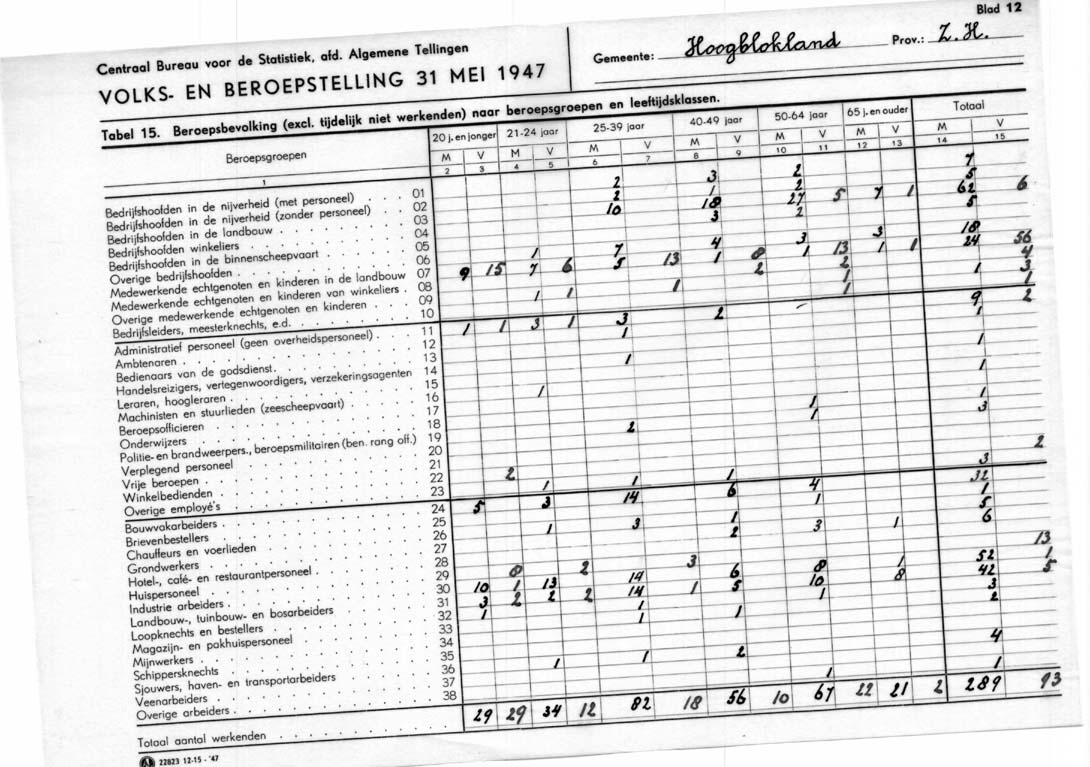 Blad 12
Centraal Bureau voor de Statistiek, afd. Algemene Tellingen
VOLKS- EN BEROEPSTELLING 31 MEI 1947
Gemeente: Hoogblokland Prov.: Z. H.
Tabel 15. Beroepsbevolking (excl. tijdelijk niet werkenden) naar beroepsgroepen en leeftijdsklassen.
Beroepsgroepen 20 j. en jonger 21-24 jaar 25-39 jaar 40-49 jaar 50-64 jaar 65 j. en ouder Totaal
M V M V M V M V M V M V M V
1 2 3 4 5 6 7 8 9 10 11 12 13 14 15
Bedrijfshoofden in de nijverheid (met personeel) 01 2 3 2 7
Bedrijfshoofden in de nijverheid (zonder personeel) 02 2 1 2 5
Bedrijfshoofden in de landbouw 03 10 18 27 5 7 1 62 6
Bedrijfshoofden winkeliers 04 3 2 5
Bedrijfshoofden in de binnenscheepvaart 05
Overige bedrijfshoofden 06 1 7 4 3 3 18
Medewerkende echtgenoten en kinderen in de landbouw 07 9 15 7 6 5 13 1 8 1 13 1 1 24 56
Medewerkende echtgenoten en kinderen van winkeliers 08 2 2 4
Overige medewerkende echtgenoten en kinderen 09 1 1 1 1 1 3
Bedrijfsleiders, meesterknechts, e.d. 10 1 1
Administratief personeel (geen overheidspersoneel) 11 1 1 3 1 3 2 9 2
Ambtenaren 12 1 1
Bedienaars van de godsdienst 13
Handelsreizigers, vertegenwoordigers, verzekeringsagenten 14 1 1
Leraren, hoogleraren 15
Machinisten en stuurlieden (zeescheepvaart) 16 1 1
Beroepsofficieren 17
Onderwijzers 18 1 1
Politie- en brandweerpers., beroepsmilitairen (ben. rang off.) 19 2 1 3
Verplegend personeel 20
Vrije beroepen 21 2 2
Winkelbedienden 22 1 1 1 3
Overige employé's 23 5 3 14 6 4 32
Bouwvakarbeiders 24 1 1
Brievenbestellers 25 1 3 1 5
Chauffeurs en voerlieden 26 2 3 1 6
Grondwerkers 27
Hotel-, café- en restaurantpersoneel 28 8 2 3 13
Huispersoneel 29 10 1 13 14 6 8 1 52 1
Industrie arbeiders 30 3 2 2 2 14 1 5 10 8 42 5
Landbouw-, tuinbouw- en bosarbeiders 31 1 1 1 3
Loopknechts en bestellers 32 1 1 2
Magazijn- en pakhuispersoneel 33
Mijnwerkers 34
Schippersknechts 35 1 1 2 4
Sjouwers, haven- en transportarbeiders 36
Veenarbeiders 37
Overige arbeiders 38 1 1
Totaal aantal werkenden 29 29 34 12 82 18 56 10 67 22 21 2 289 93
22823 12-15 - '47